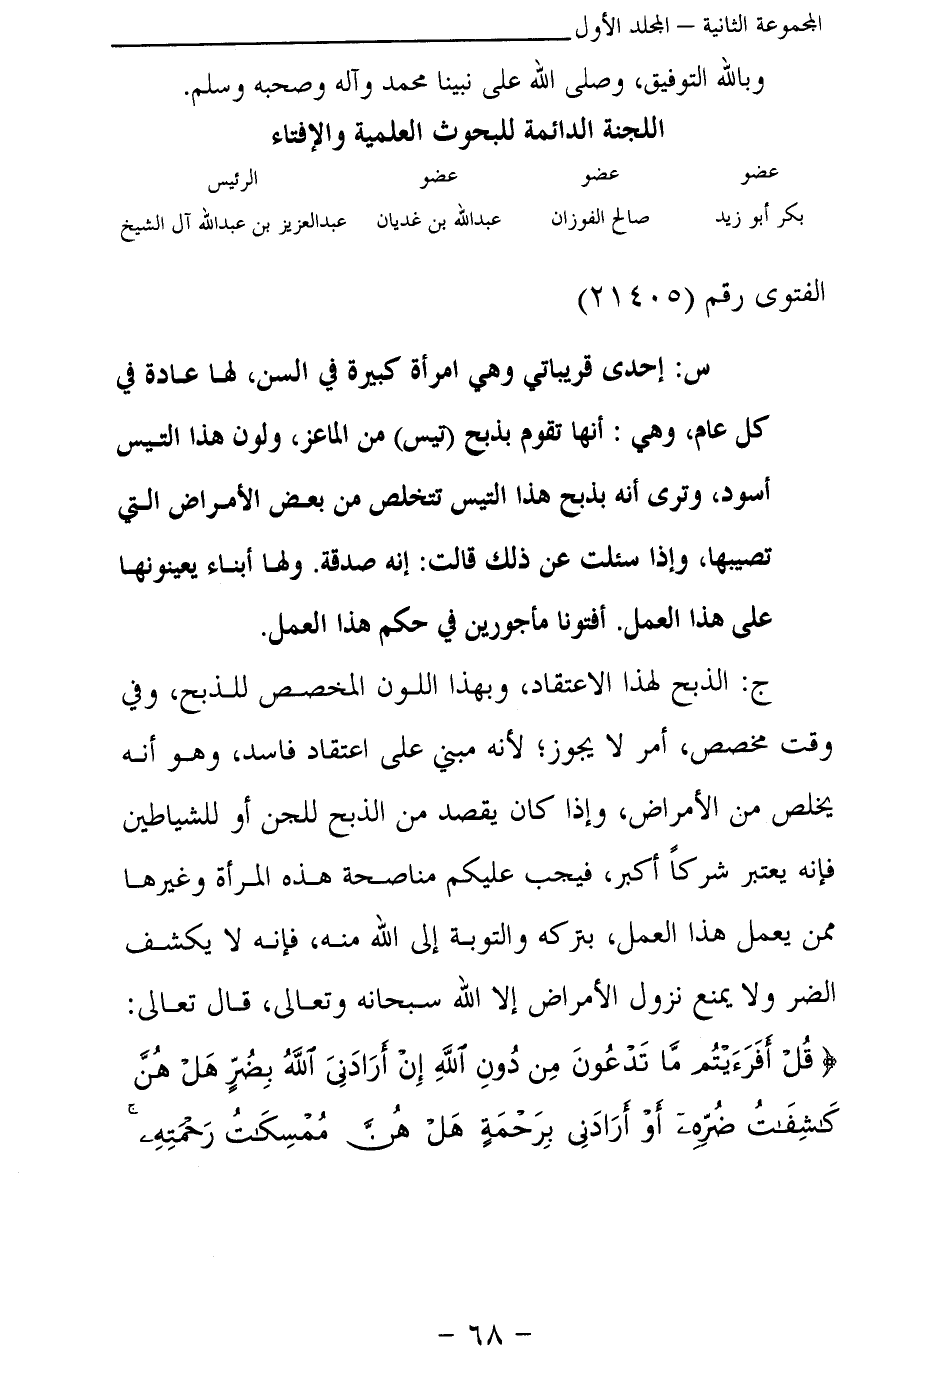 المجموعة الثانية – المجلد الأول
وبالله التوفيق، وصلى الله على نبينا محمد وآله وصحبه وسلم.
اللجنة الدائمة للبحوث العلمية والإفتاء
عضو عضو عضو الرئيس
بكر أبو زيد صالح الفوزان عبدالله بن غديان عبدالعزيز بن عبدالله آل الشيخ
الفتوى رقم (٢١٤٠٥)
س: إحدى قريباتي وهي امرأة كبيرة في السن، لها عادة في
كل عام، وهي : أنها تقوم بذبح (تيس) من الماعز، ولون هذا التيس
أسود، وترى أنه بذبح هذا التيس تتخلص من بعض الأمراض التي
تصيبها، وإذا سئلت عن ذلك قالت: إنه صدقة. ولها أبناء يعينونها
على هذا العمل. أفتونا مأجورين في حكم هذا العمل.
ج: الذبح لهذا الاعتقاد، وبهذا اللون المخصص للذبح، وفي
وقت مخصص، أمر لا يجوز؛ لأنه مبني على اعتقاد فاسد، وهو أنه
يخلص من الأمراض، وإذا كان يقصد من الذبح للجن أو للشياطين
فإنه يعتبر شركاً أكبر، فيجب عليكم مناصحة هذه المرأة وغيرها
ممن يعمل هذا العمل، بتركه والتوبة إلى الله منه، فإنه لا يكشف
الضر ولا يمنع نزول الأمراض إلا الله سبحانه وتعالى، قال تعالى:
﴿ قُلْ أَفَرَءَيْتُم مَّا تَدْعُونَ مِن دُونِ ٱللَّهِ إِنْ أَرَادَنِيَ ٱللَّهُ بِضُرٍّ هَلْ هُنَّ
كَـٰشِفَـٰتُ ضُرِّهِۦٓ أَوْ أَرَادَنِى بِرَحْمَةٍ هَلْ هُنَّ مُمْسِكَـٰتُ رَحْمَتِهِۦ ۚ
– ٦٨ –